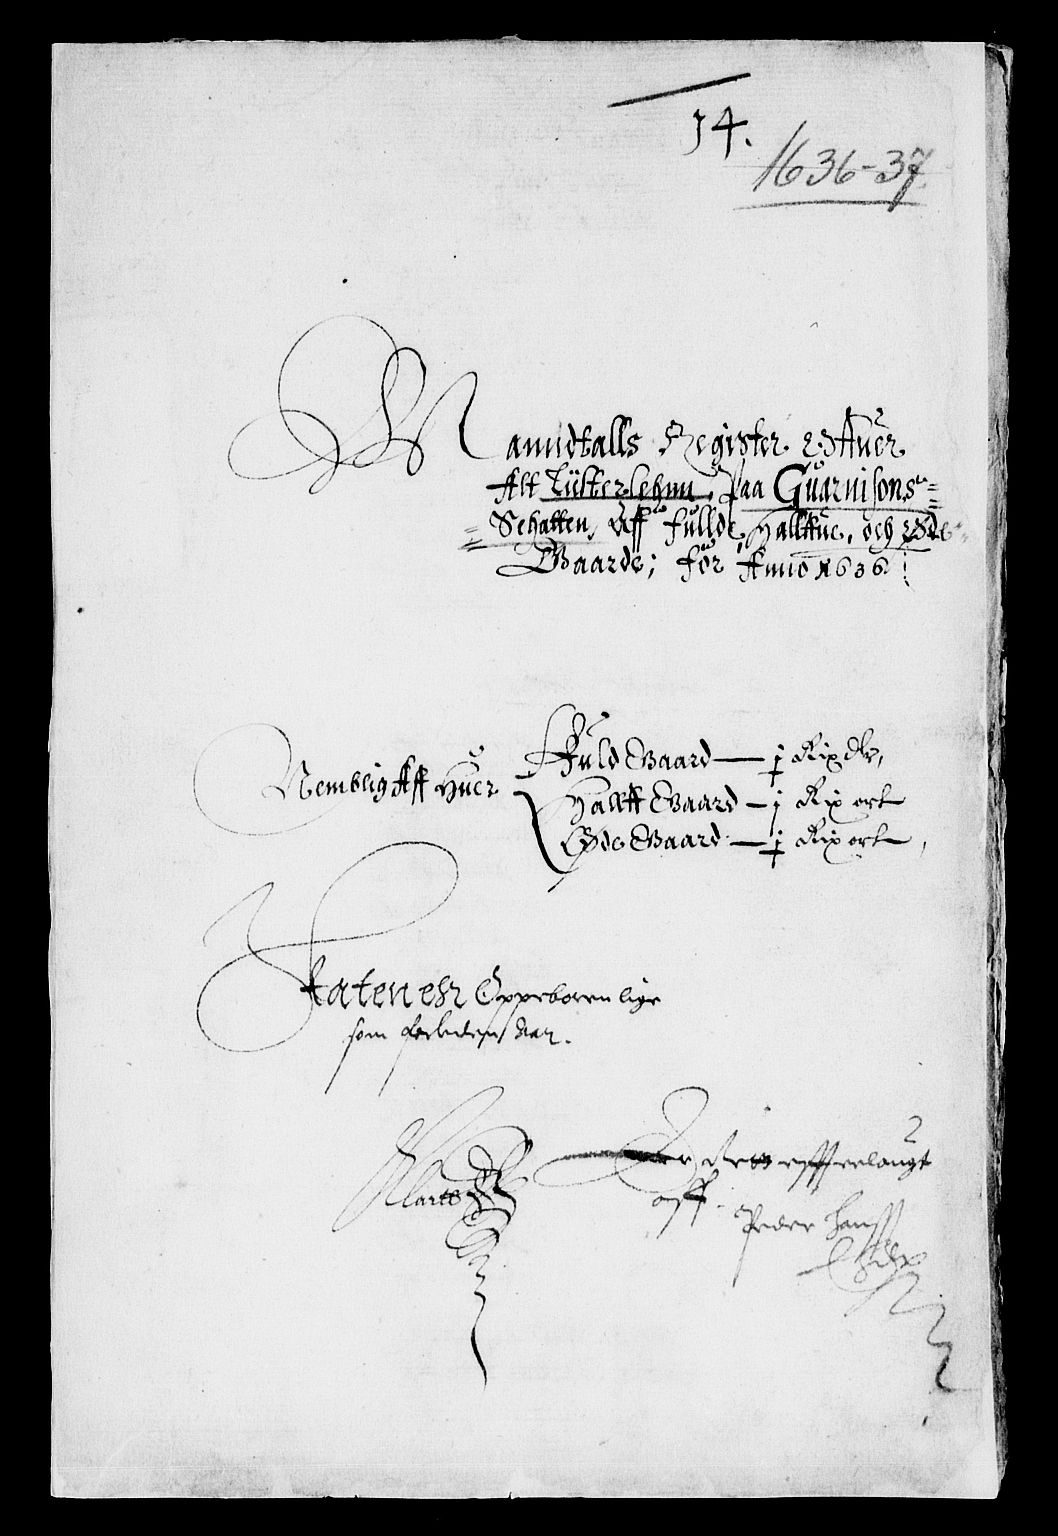 14.
1636-37
Manndtalls Register Offuer
Alt Lüster lehnn, paa Guarnisons
Schatten, Aff fullde, Hallffue, och Øde
Gaarde; for Anno 1636
Nemblig Aff Huer
Fuld Gaard — j Rixdlr,
Halff Gaard — j Rix ort
Øde Gaard — j Rix ort,
Oppeboren lige
som forleden Aar.
aff.
Peder Hanss